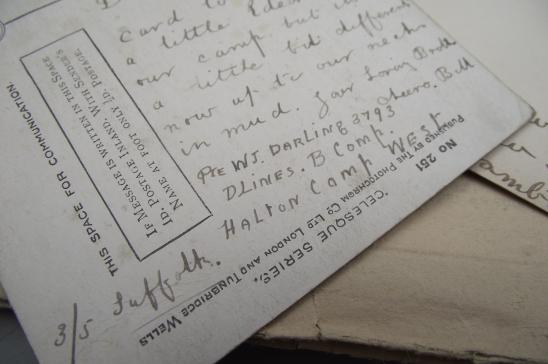 card to
a little
our camp but
a little bit different
now up to our neck
in mud. your loving Broth
cheero. Bill
Pte WJ. DARLING 3793
D LINES. B Comp.
HALTON Camp WEST
3/5 Suffolk.
THIS SPACE FOR COMMUNICATION.
IF MESSAGE IS WRITTEN IN THIS SPACE
1D. POSTAGE INLAND. WITH SENDER'S
NAME AT FOOT ONLY ½D. POSTAGE.
No 251
"CELESQUE SERIES,"
PUBLISHED BY THE PHOTOCHROM CO LTD LONDON AND TUNBRIDGE WELLS